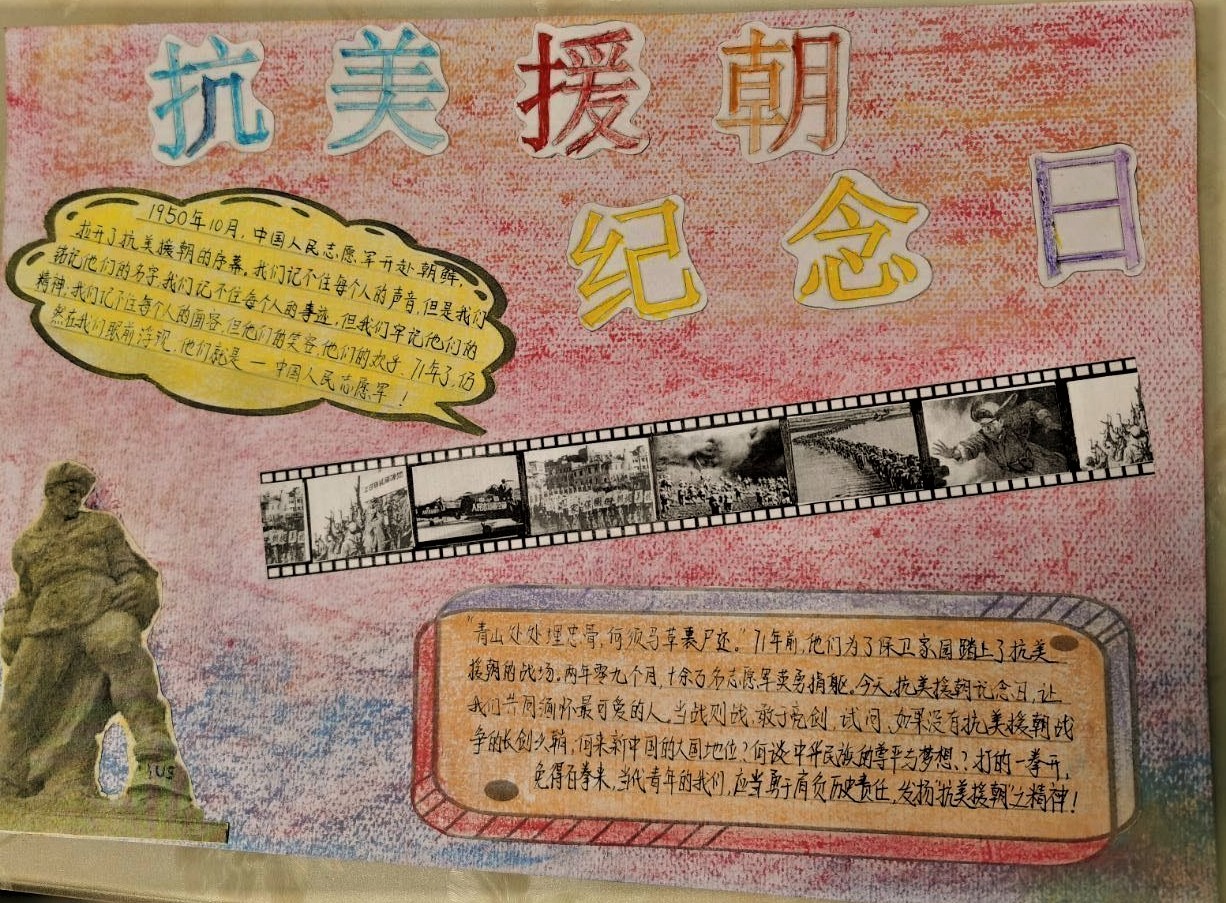 抗美援朝
纪念日
1950年10月，中国人民志愿军开赴朝鲜，
拉开了抗美援朝的序幕。我们记不住每个人的声音，但是我们
铭记他们的名字，我们记不住每个人的事迹，但我们牢记他们的
精神，我们记不住每个人的面容，但他们的笑容，他们的欢乐，71年了，仍
然在我们眼前浮现，他们就是——中国人民志愿军！
"青山处处埋忠骨，何须马革裹尸还。"71年前，他们为了保卫家园踏上了抗美
援朝的战场。两年零九个月，十余万名志愿军英勇捐躯。今天，抗美援朝纪念日，让
我们共同缅怀最可爱的人。当战则战，敢于亮剑，试问，如果没有抗美援朝战
争的长剑出鞘，何来新中国的大国地位？何谈中华民族的尊严与梦想？打的一拳开，
免得百拳来，当代青年的我们，应当勇于肩负历史责任，发扬"抗美援朝"之精神！
US